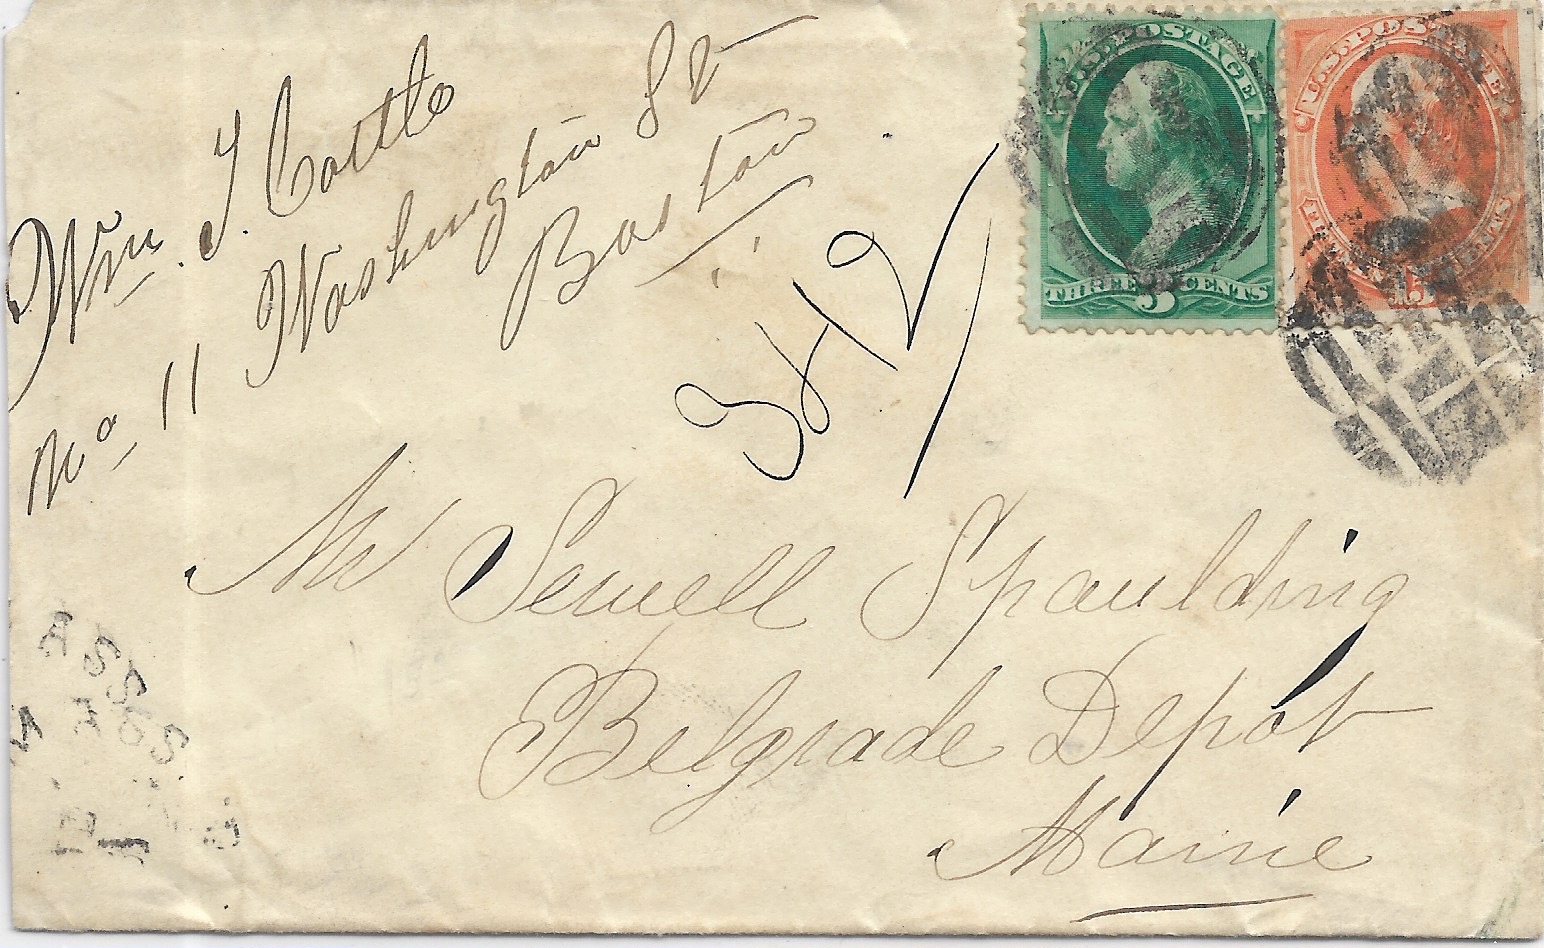 Wm. T. Cottle
No 11 Washington St
Boston
342
U.S. POSTAGE
THREE 3 CENTS
U.S. POSTAGE
15 CENTS
Mr Sewell Spaulding
Belgrade Depot
Maine